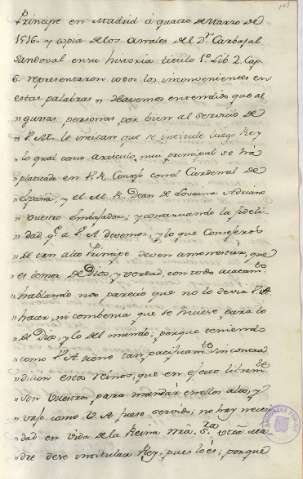 Principe en Madrid á quatro de Marzo de
1516. y copia de los Anales del Dr. Carbajal
Sandoval en su historia titulo 1.º Lib 2. Cap
6. representaron todos los inconvenientes en
estas palabras y Havemos entendido que al
gunas personas por bien al servicio de
V. Al. le incitan que se intitule luego Rey
lo qual como articulo, muy principal se ha
platicado en V. R. Consejo con el Cardenal de
España, y el M. R. Dean de Lovaina Adriano
vuestro embajador; y considerando la fideli
dad q.e a V. A. devemos, y lo que Consejeros
de tan alto Principe deven amonestar, que
es temor de Dios, y verdad, con todo acatam.to
hablando nos pareció que no lo devia V. A
hacer, ni combenia que se hiciese para lo
de Dios, y lo del mundo; porque teniendo
como V. A. tiene tan pacificam.te sin contra
dicion estos Reinos, que en efecto librem.te
son vuestros, para mandar en ellos alto, y
vajo como V. A fuere servido, no hay nece
dad en vida de la Reina nra. S.ra vtra ma
dre de se intitular Rey, pues lo es; porque